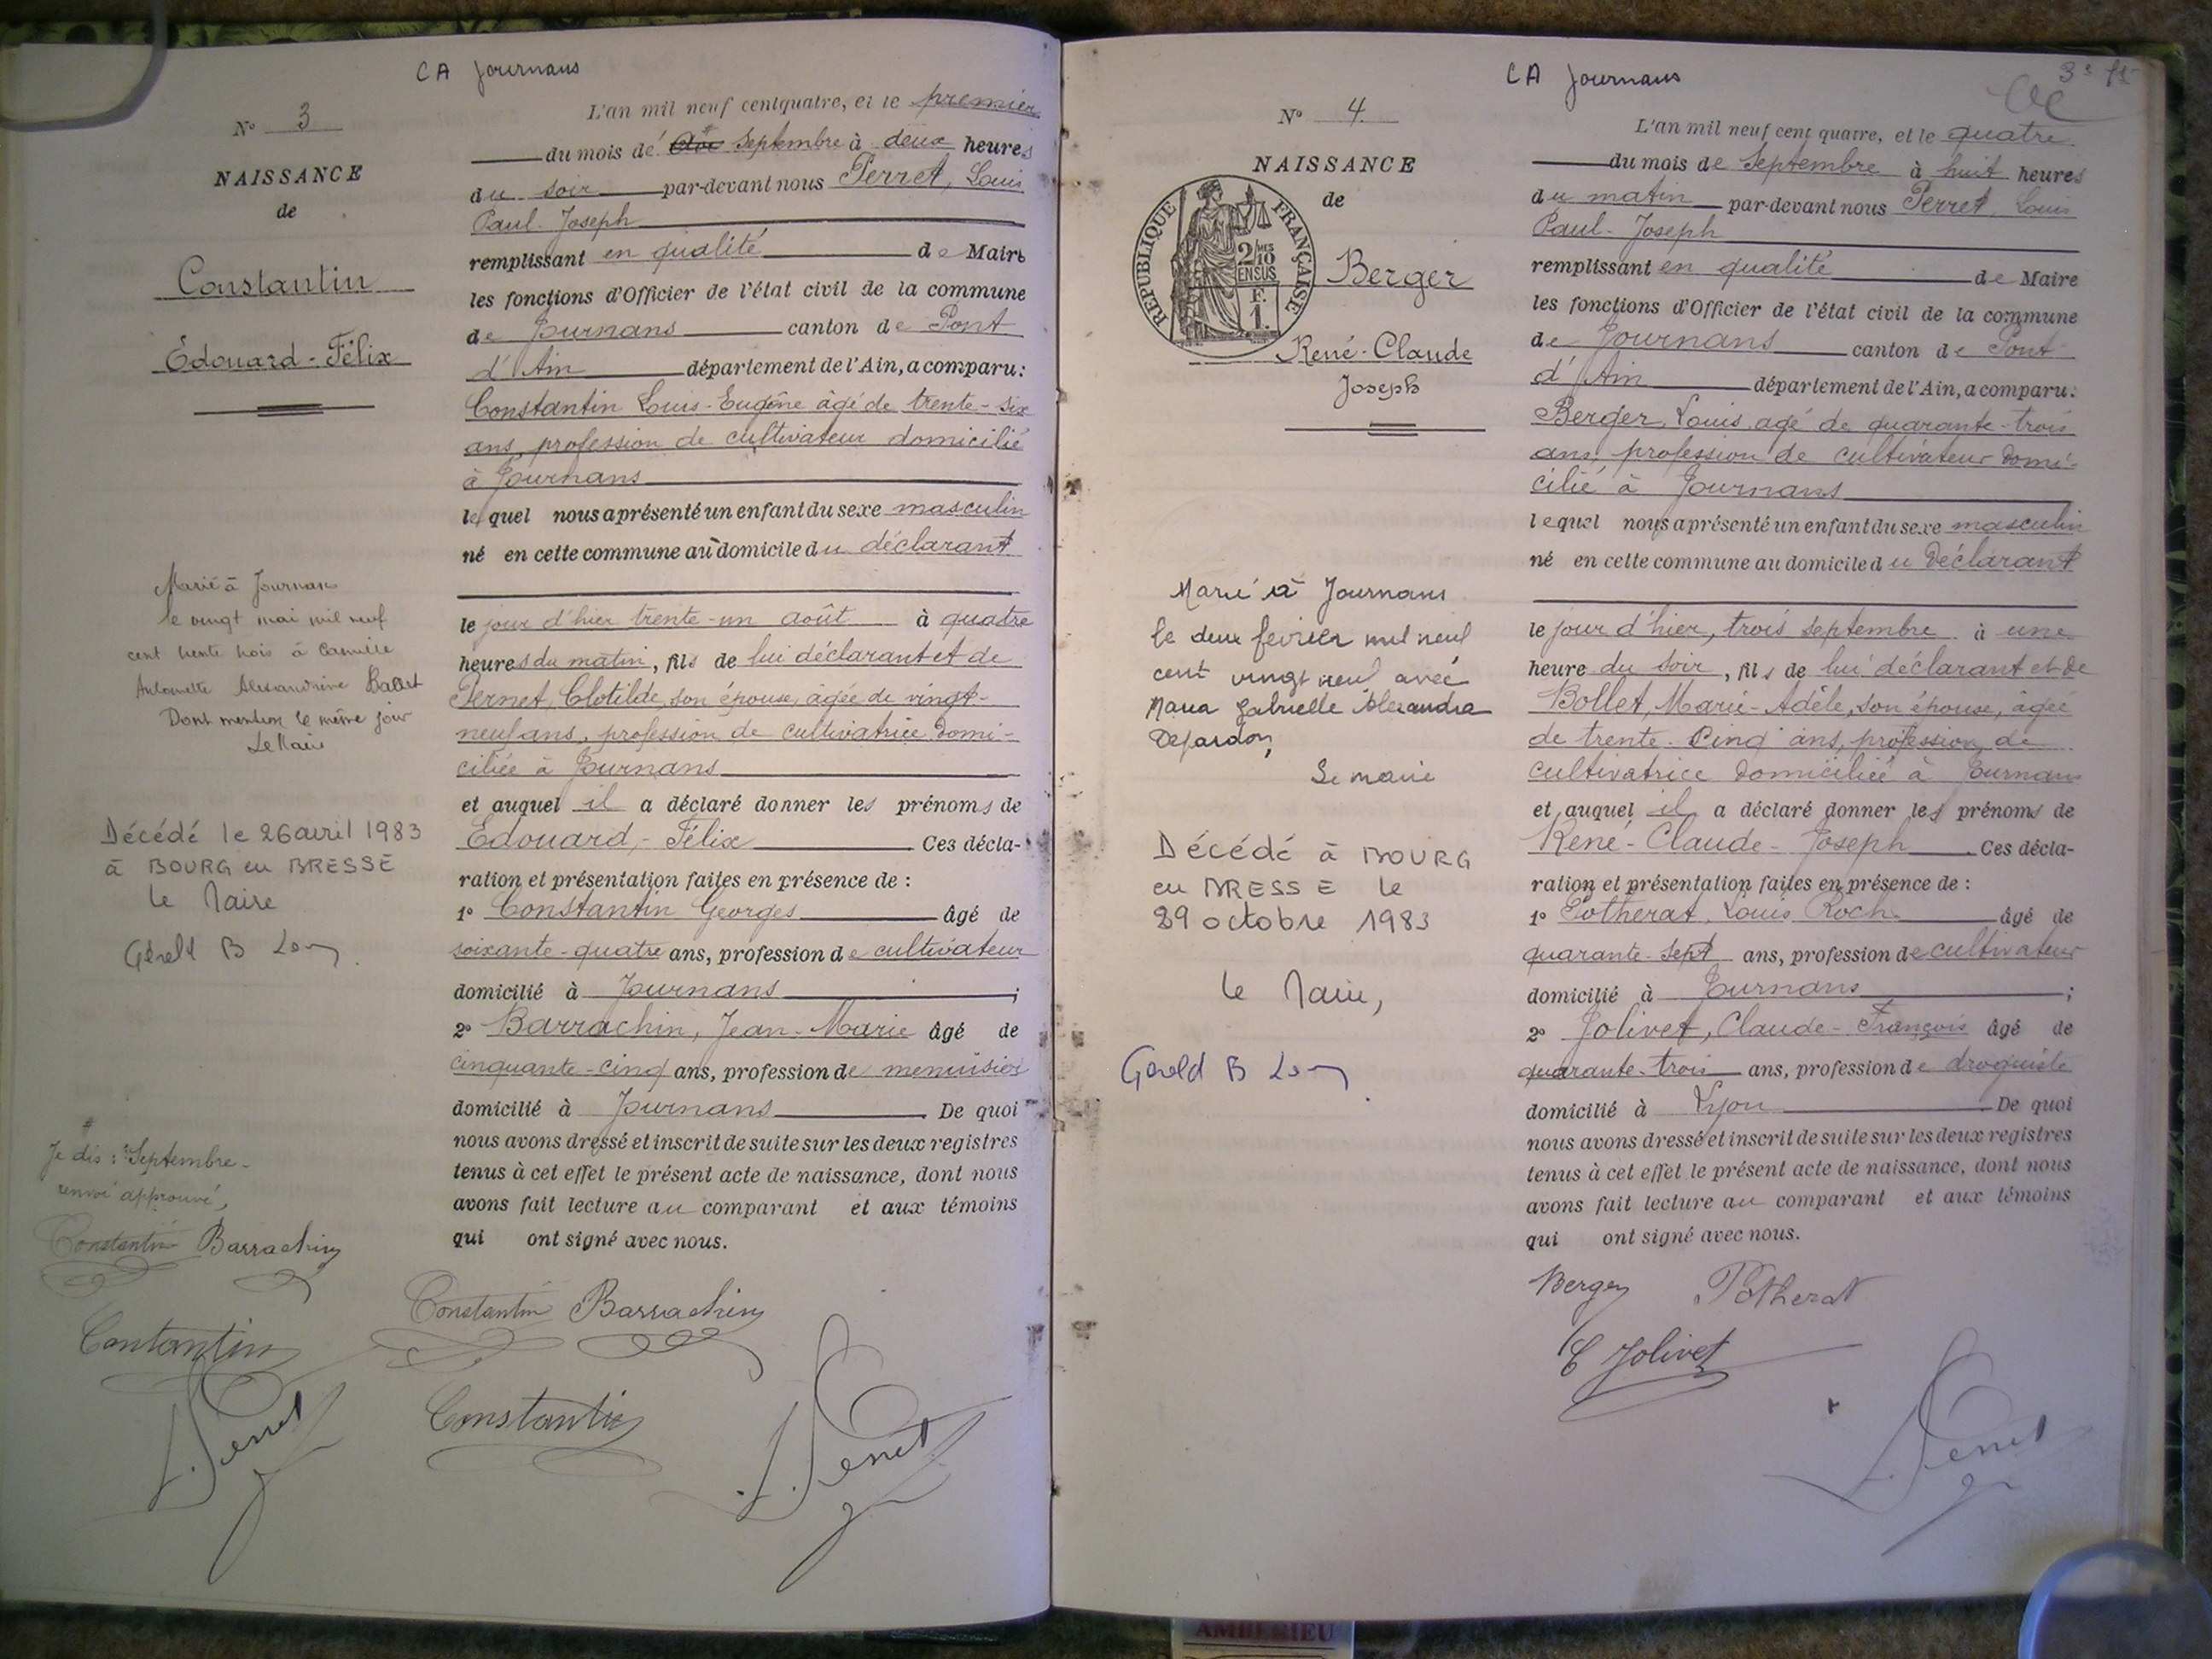 CA Journans
N° 3
NAISSANCE
de
Constantin
Édouard-Félix
L'an mil neuf cent quatre, et le premier
du mois de Septembre à deux heures
du soir par-devant nous Perret, Louis
Paul-Joseph
remplissant en qualité de Maire
les fonctions d'Officier de l'état civil de la commune
de Journans canton de Pont
d'Ain département de l'Ain, a comparu:
Constantin Louis-Eugène âgé de trente-six
ans, profession de cultivateur domicilié
à Journans
lequel nous a présenté un enfant du sexe masculin
né en cette commune au domicile du déclarant
le jour d'hier trente-un août à quatre
heures du matin, fils de lui déclarant et de
Pernet, Clotilde, son épouse, âgée de vingt-
neuf ans, profession de cultivatrice domi-
ciliée à Journans
et auquel il a déclaré donner les prénoms de
Édouard-Félix Ces décla-
ration et présentation faites en présence de :
1° Constantin Georges âgé de
soixante-quatre ans, profession de cultivateur
domicilié à Journans ;
2° Barrachin, Jean-Marie âgé de
cinquante-cinq ans, profession de menuisier
domicilié à Journans De quoi
nous avons dressé et inscrit de suite sur les deux registres
tenus à cet effet le présent acte de naissance, dont nous
avons fait lecture au comparant et aux témoins
qui ont signé avec nous.
Constantin Barrachin
Constantin
L. Perret
Marié à Journans
le vingt mai mil neuf
cent trente trois à Camille
Antoinette Alexandrine Ballet
Dont mention le même jour
Le Maire
Décédé le 26 avril 1983
à BOURG en BRESSE
le Maire
Gérald B
#
Je dis : Septembre-
renvoi approuvé,
Constantin Barrachin
Constantin
L. Perret
CA Journans
N° 4.
NAISSANCE
de
REPUBLIQUE FRANÇAISE
2/10MES
EN SUS
F.
1.
Berger
René-Claude
Joseph
L'an mil neuf cent quatre, et le quatre
du mois de Septembre à huit heures
du matin par-devant nous Perret, Louis
Paul-Joseph
remplissant en qualité de Maire
les fonctions d'Officier de l'état civil de la commune
de Journans canton de Pont
d'Ain département de l'Ain, a comparu:
Berger, Louis, agé de quarante-trois
ans, profession de cultivateur domi-
cilié à Journans
lequel nous a présenté un enfant du sexe masculin
né en cette commune au domicile du déclarant
le jour d'hier, trois septembre à une
heure du soir, fils de lui déclarant et de
Bollet, Marie-Adèle, son épouse, âgée
de trente-cinq ans, profession de
cultivatrice domiciliée à Journans
et auquel il a déclaré donner les prénoms de
René-Claude-Joseph Ces décla-
ration et présentation faites en présence de :
1° Potherat, Louis Roch âgé de
quarante-sept ans, profession de cultivateur
domicilié à Journans ;
2° Jolivet, Claude-François âgé de
quarante-trois ans, profession de droguiste
domicilié à Lyon De quoi
nous avons dressé et inscrit de suite sur les deux registres
tenus à cet effet le présent acte de naissance, dont nous
avons fait lecture au comparant et aux témoins
qui ont signé avec nous.
Berger Potherat
C Jolivet
L. Perret
Marié à Journans
le deux fevrier mil neuf
cent vingt neuf avec
Maria Gabrielle Alexandra
Dejardon,
Le maire
Décédé à BOURG
en BRESSE le
29 octobre 1983
le Maire,
Gérald B
AMBERIEU